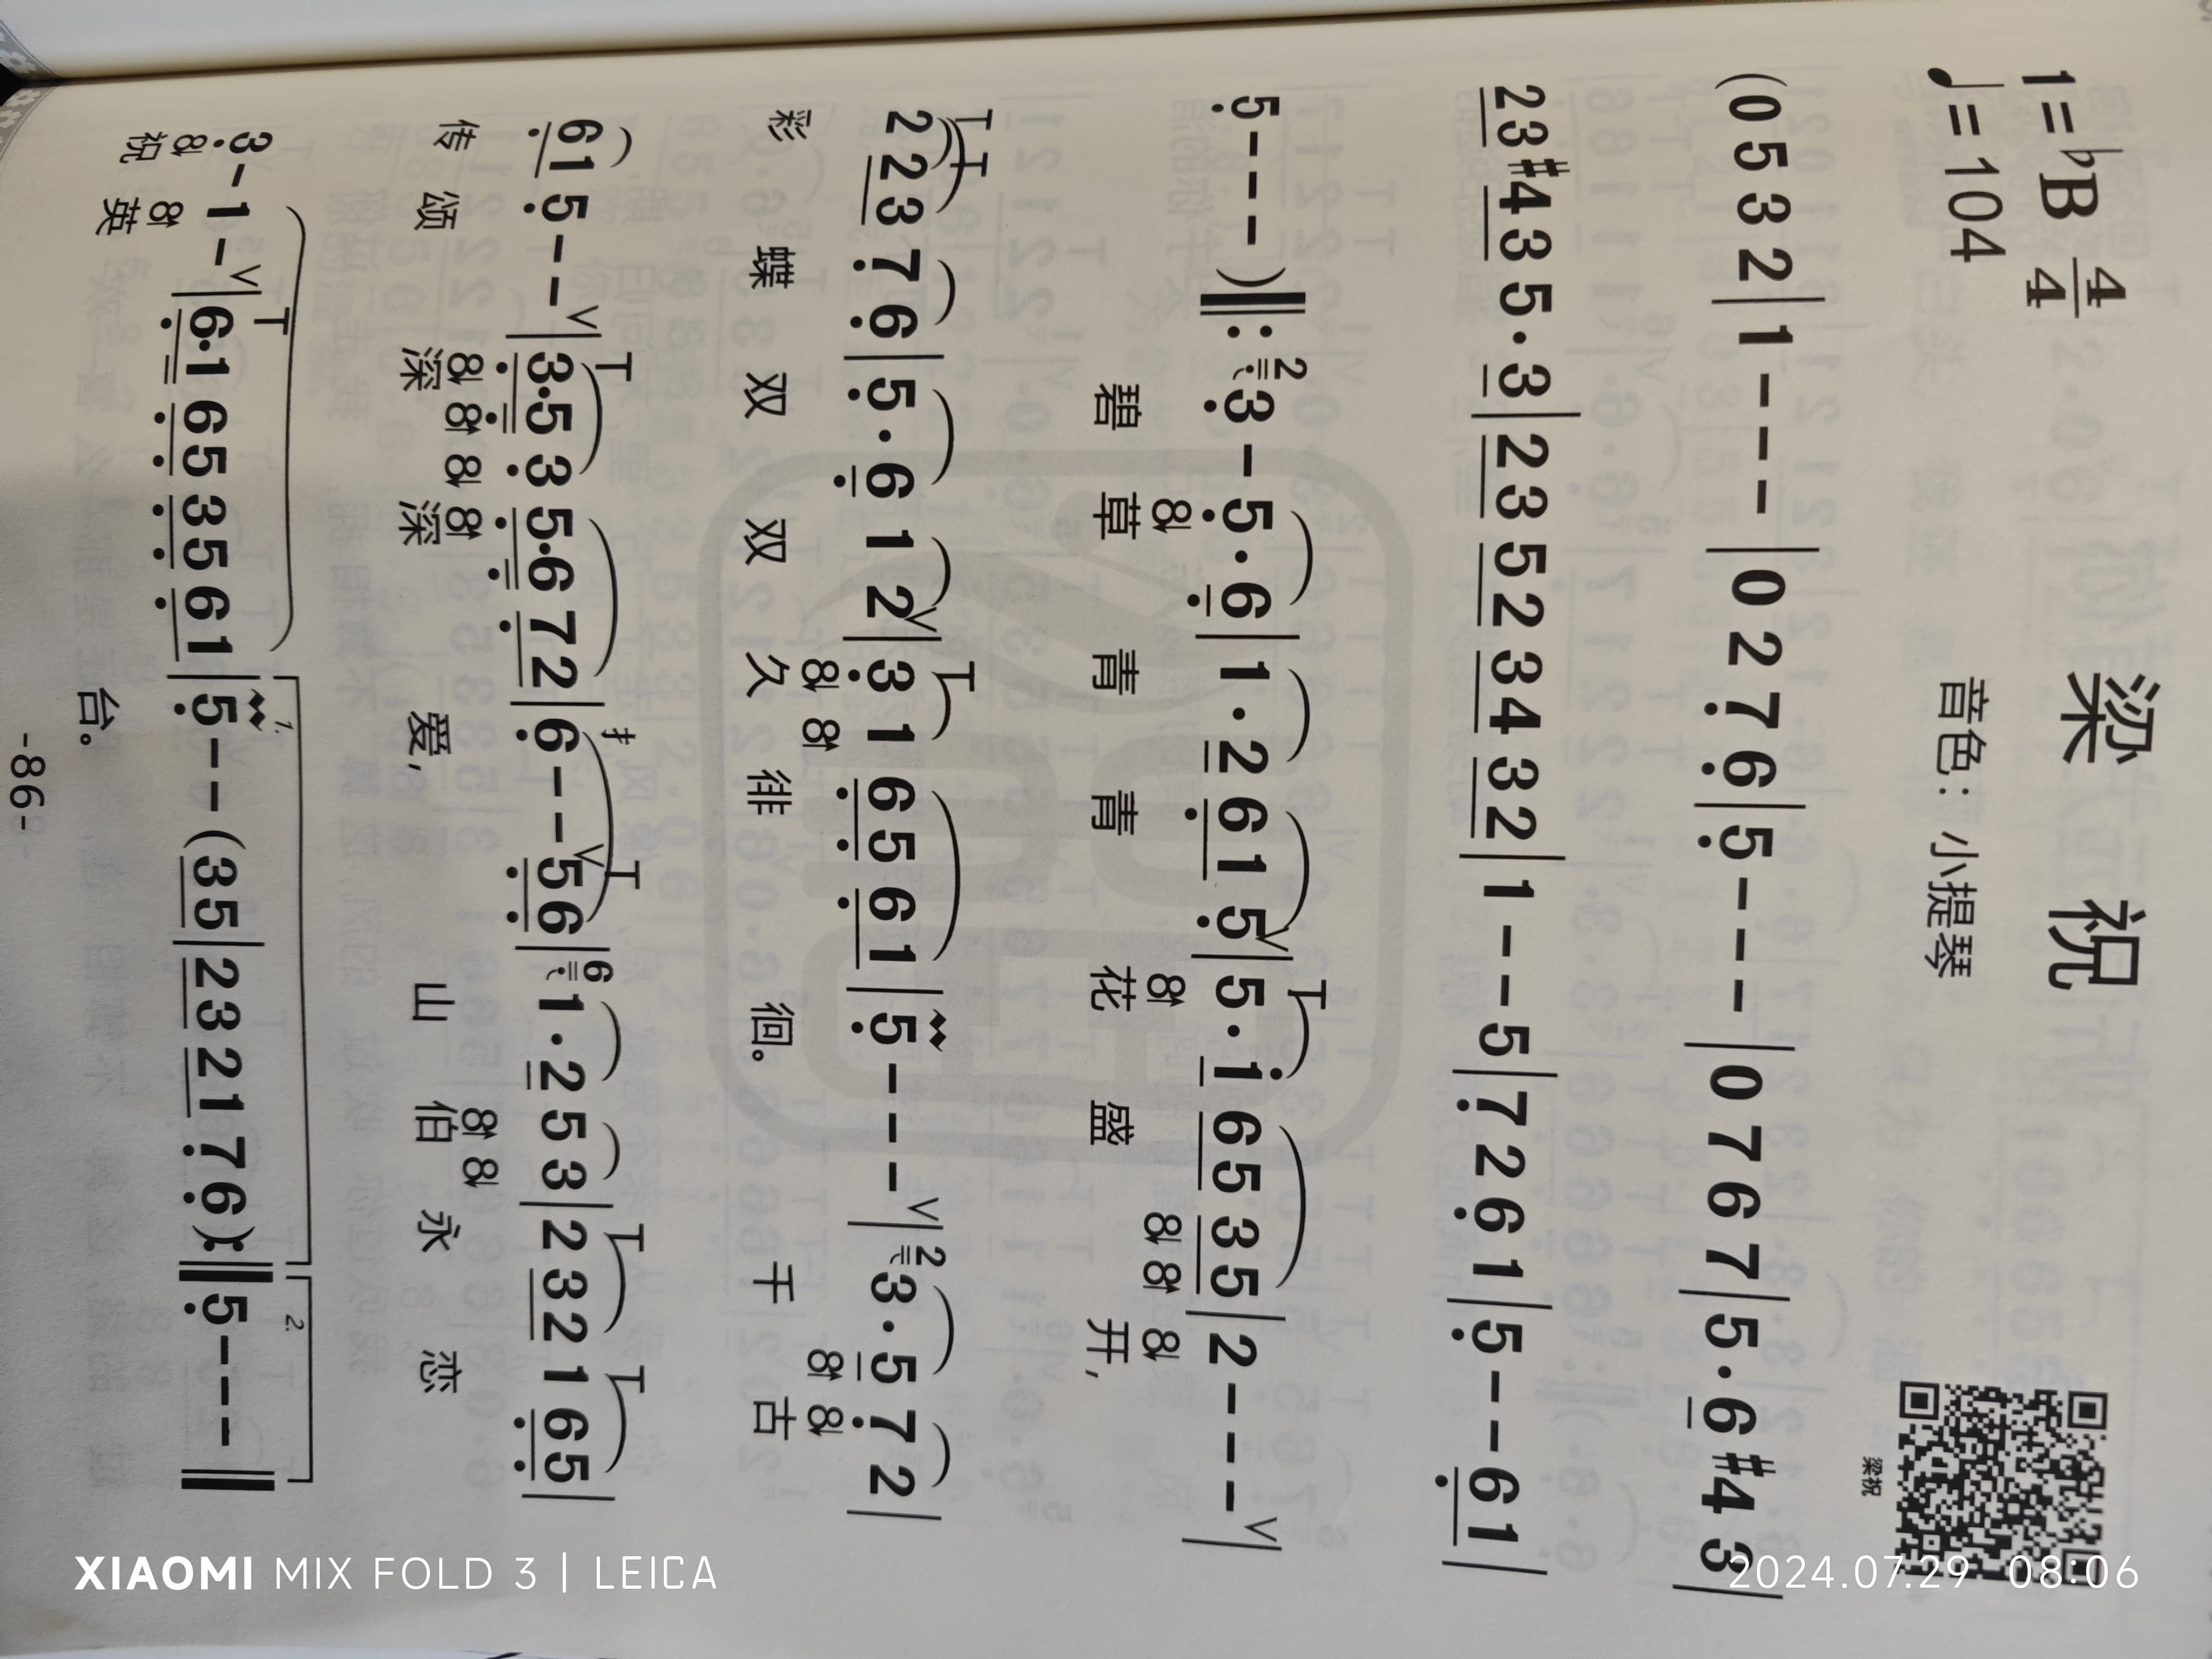 梁 祝
1=♭B 4/4
♩=104
音色：小提琴
梁祝
(0 5 3 2 | 1 - - - | 0 2 7̣ 6̣ | 5̣ - - - | 0 7 6 7 | 5· 6 #4 3 |
23 #43 5· 3 | 23 52 34 32 | 1 - - 5 | 7̣ 2 6̣ 1 | 5̣ - - 6̣1 |
5̣ - - - ) ‖: ²3̣ - 5̣· 6̣ | 1· 2 6̣1 5̣ V | 5· 1̇ 65 35 | 2 - - - V |
碧 草 青 青 花 盛 开,
2 23 7̣ 6̣ | 5̣· 6̣ 1 2 V | 3̣ 1 6̣5̣ 6̣1 | 5̣ - - - V | ²3· 5 7̣ 2 |
彩 蝶 双 双 久 徘 徊。 千 古
6̣1 5̣ - - V | 3̣·5̣ 3̣ 5̣·6̣ 7̣2 | 6̣ - - V 5̣6̣ | ⁶1· 2 5 3 | 2 32 1 6̣5̣ |
传 颂 深 深 爱, 山 伯 永 恋
3̣ - 1 - V | 6̣·1 6̣5̣ 3̣5̣ 6̣1 | 5̣ - - (35 | 23 21 7̣ 6̣) :‖ 5̣ - - - ‖
祝 英 台。
1. 2.
-86-
XIAOMI MIX FOLD 3 | LEICA
2024.07.29 08:06